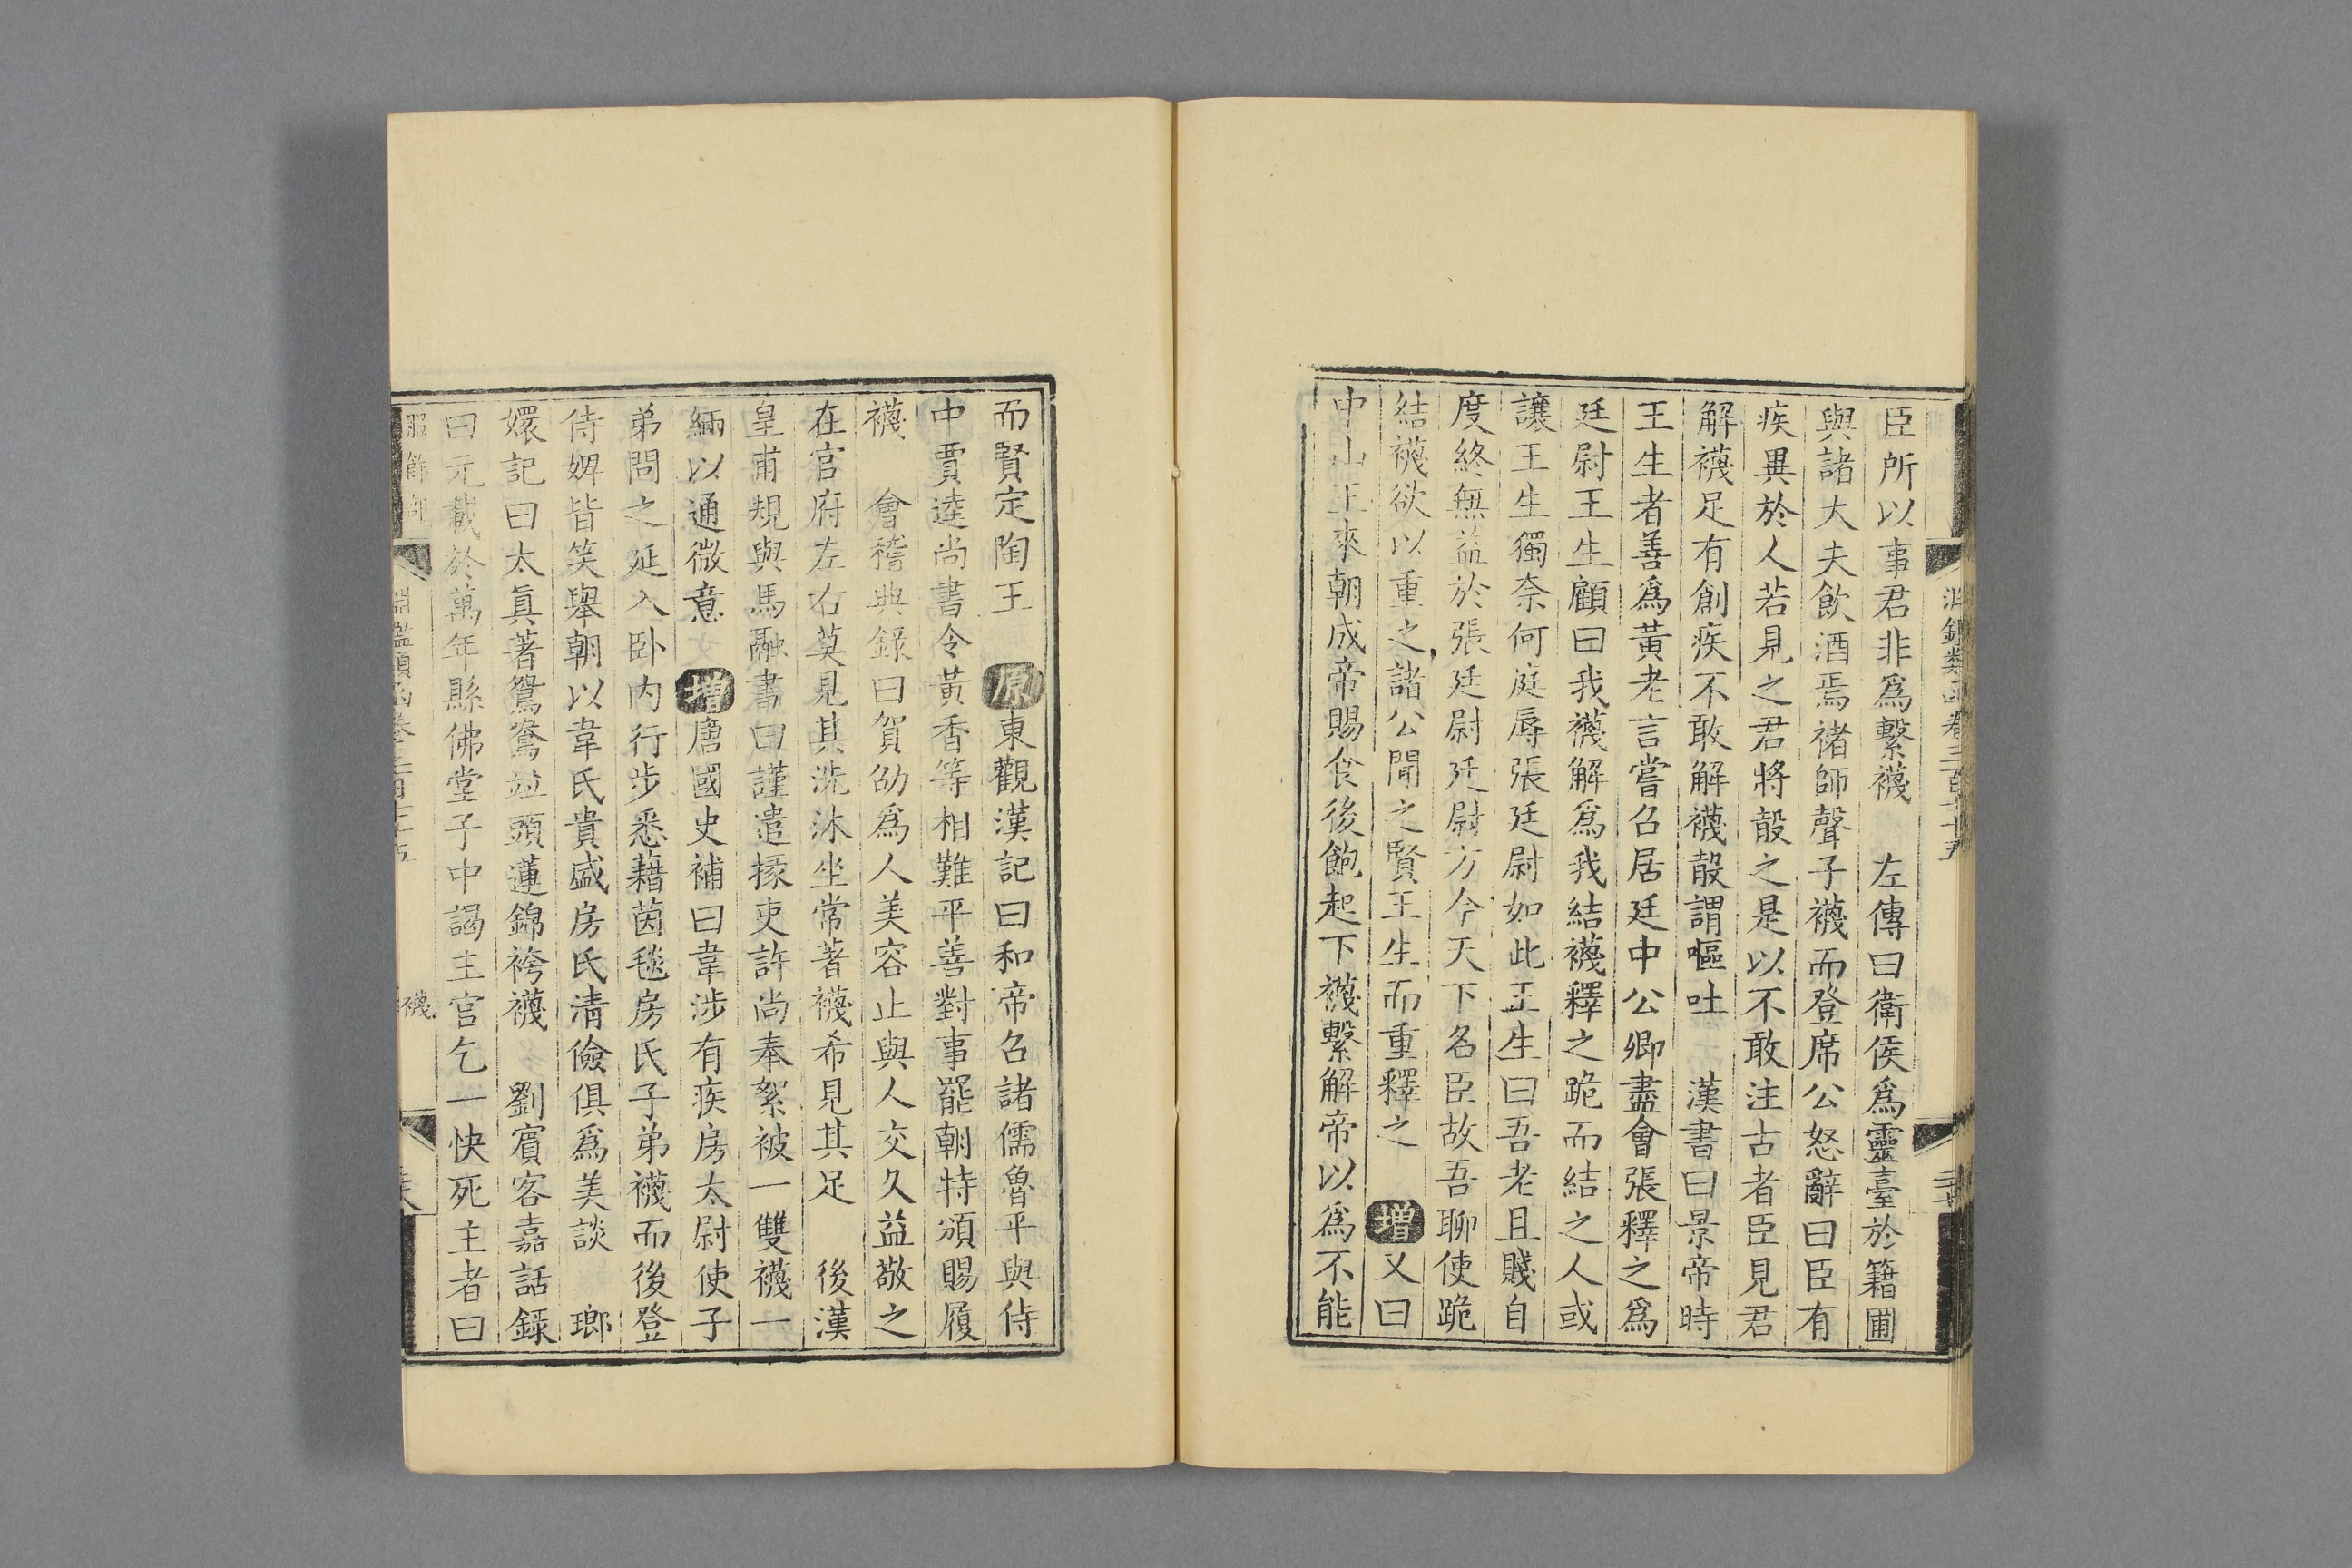 臣所以事君非爲繫襪　左傳曰衛侯爲靈臺於籍圃
與諸大夫飲酒焉褚師聲子襪而登席公怒辭曰臣有
疾異於人若見之君將㱿之是以不敢注古者臣見君
解襪足有創疾不敢解襪㱿謂嘔吐　漢書曰景帝時
王生者善爲黃老言嘗召居廷中公卿盡會張釋之爲
廷尉王生顧曰我襪解爲我結襪釋之跪而結之人或
讓王生獨奈何庭辱張廷尉如此王生曰吾老且賤自
度終無益於張廷尉廷尉方今天下名臣故吾聊使跪
結襪欲以重之諸公聞之賢王生而重釋之　增又曰
中山王來朝成帝賜食後飽起下襪繫解帝以爲不能
而賢定陶王　原東觀漢記曰和帝召諸儒魯平與侍
中賈逵尚書令黃香等相難平善對事罷朝特頒賜履
襪　會稽典錄曰賀劭爲人美容止與人交久益敬之
在官府左右莫見其洗沐坐常著襪希見其足　後漢
皇甫規與馬融書曰謹遣掾吏許尚奉絮被一雙襪一
緉以通微意　增唐國史補曰韋涉有疾房太尉使子
弟問之延入卧内行步悉藉茵毯房氏子弟襪而後登
侍婢皆笑舉朝以韋氏貴盛房氏清儉俱爲美談　瑯
嬛記曰太眞著鴛鴦竝頭蓮錦袴襪　劉賓客嘉話錄
曰元載於萬年縣佛堂子中謁主官乞一快死主者曰
服飾部
襪